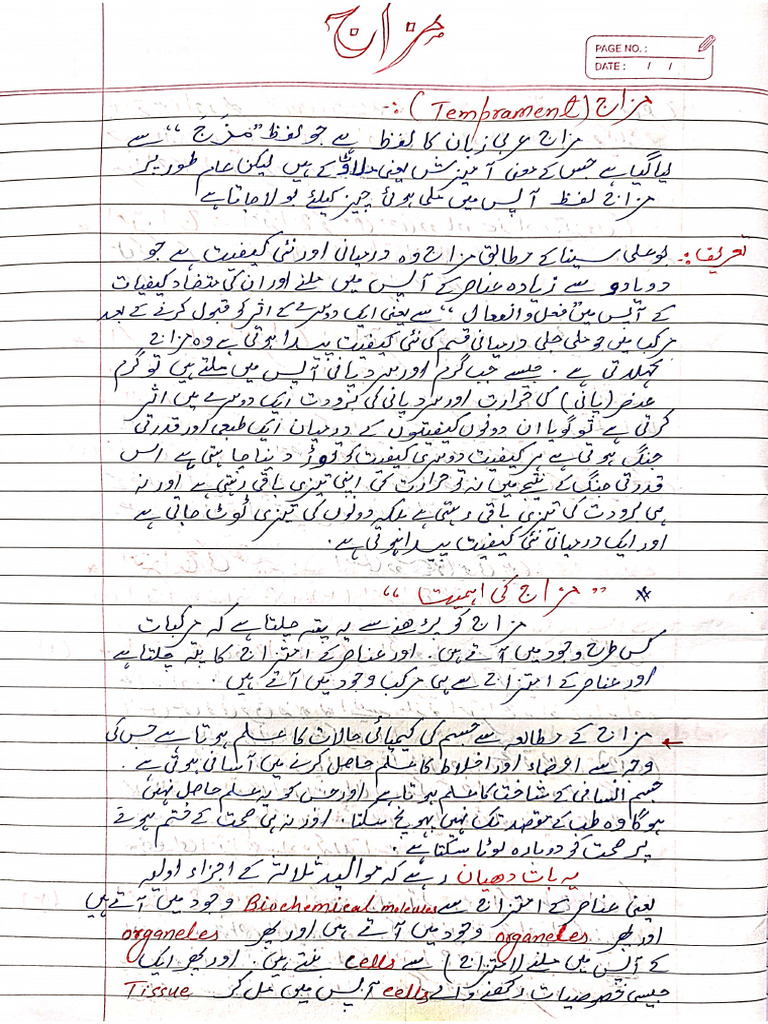 مزاج
PAGE NO. :
DATE : / /
مزاج (Temprament) :-
مزاج عربی زبان کا لفظ ہے جو لفظ ”مَزَجَ“ سے
لیا گیا ہے جس کے معنی آمیزش یعنی ملاوٹ کے ہیں لیکن عام طور پر
مزاج لفظ آپس میں ملی ہوئی چیز کیلئے بولا جاتا ہے
تعریف :- بوعلی سینا کے مطابق مزاج وہ درمیانی اور نئی کیفیت ہے جو
دو یا دو سے زیادہ عناصر کے آپس میں ملنے اور ان کی متضاد کیفیات
کے آپس میں ”فعل و انفعال“ سے یعنی ایک دوسرے کے اثر کو قبول کرنے کے بعد
مرکب میں جو ملی جلی درمیانی قسم کی نئی کیفیت پیدا ہوتی ہے وہ مزاج
کہلاتی ہے۔ جیسے جب گرم اور سرد پانی آپس میں ملتے ہیں تو گرم
عنصر (پانی) کی حرارت اور سرد پانی کی برودت ایک دوسرے میں اثر
کرتی ہے تو گویا ان دونوں کیفیتوں کے درمیان ایک طبعی اور قدرتی
جنگ ہوتی ہے ہر کیفیت دوسری کیفیت کو توڑ دینا چاہتی ہے اس
قدرتی جنگ کے نتیجہ میں نہ تو حرارت کی اپنی تیزی باقی رہتی ہے اور نہ
ہی برودت کی تیزی باقی رہتی ہے بلکہ دونوں کی تیزی ٹوٹ جاتی ہے
اور ایک درمیانی نئی کیفیت پیدا ہوتی ہے۔
* ”مزاج کی اہمیت“
مزاج کو پڑھنے سے یہ پتہ چلتا ہے کہ مرکبات
کس طرح وجود میں آتے ہیں۔ اور عناصر کے امتزاج کا پتہ چلتا ہے
اور عناصر کے امتزاج سے ہی مرکب وجود میں آتے ہیں۔
← مزاج کے مطالعہ سے جسم کی کیمیائی حالات کا علم ہوتا ہے جس کی
وجہ سے اعضاء اور اخلاط کا علم حاصل کرنے میں آسانی ہوتی ہے۔
جسم انسانی کے شناخت کا علم ہوتا ہے اور جس کو یہ علم حاصل نہیں
ہوگا وہ طب کے مقصد تک نہیں پہونچ سکتا۔ اور نہ ہی صحت کے ختم ہونے
پر صحت کو دوبارہ لوٹا سکتا ہے۔
یہ بات دھیان رہے کہ موالید ثلاثہ کے اجزاء اولیہ
یعنی عناصر کے امتزاج سے Biochemical molecules وجود میں آتے ہیں
اور پھر organeles وجود میں آتے ہیں اور پھر organeles
کے آپس میں ملنے (امتزاج) سے cells بنتے ہیں۔ اور پھر ایک
جیسی خصوصیات رکھنے والے cells آپس میں مل کر Tissue